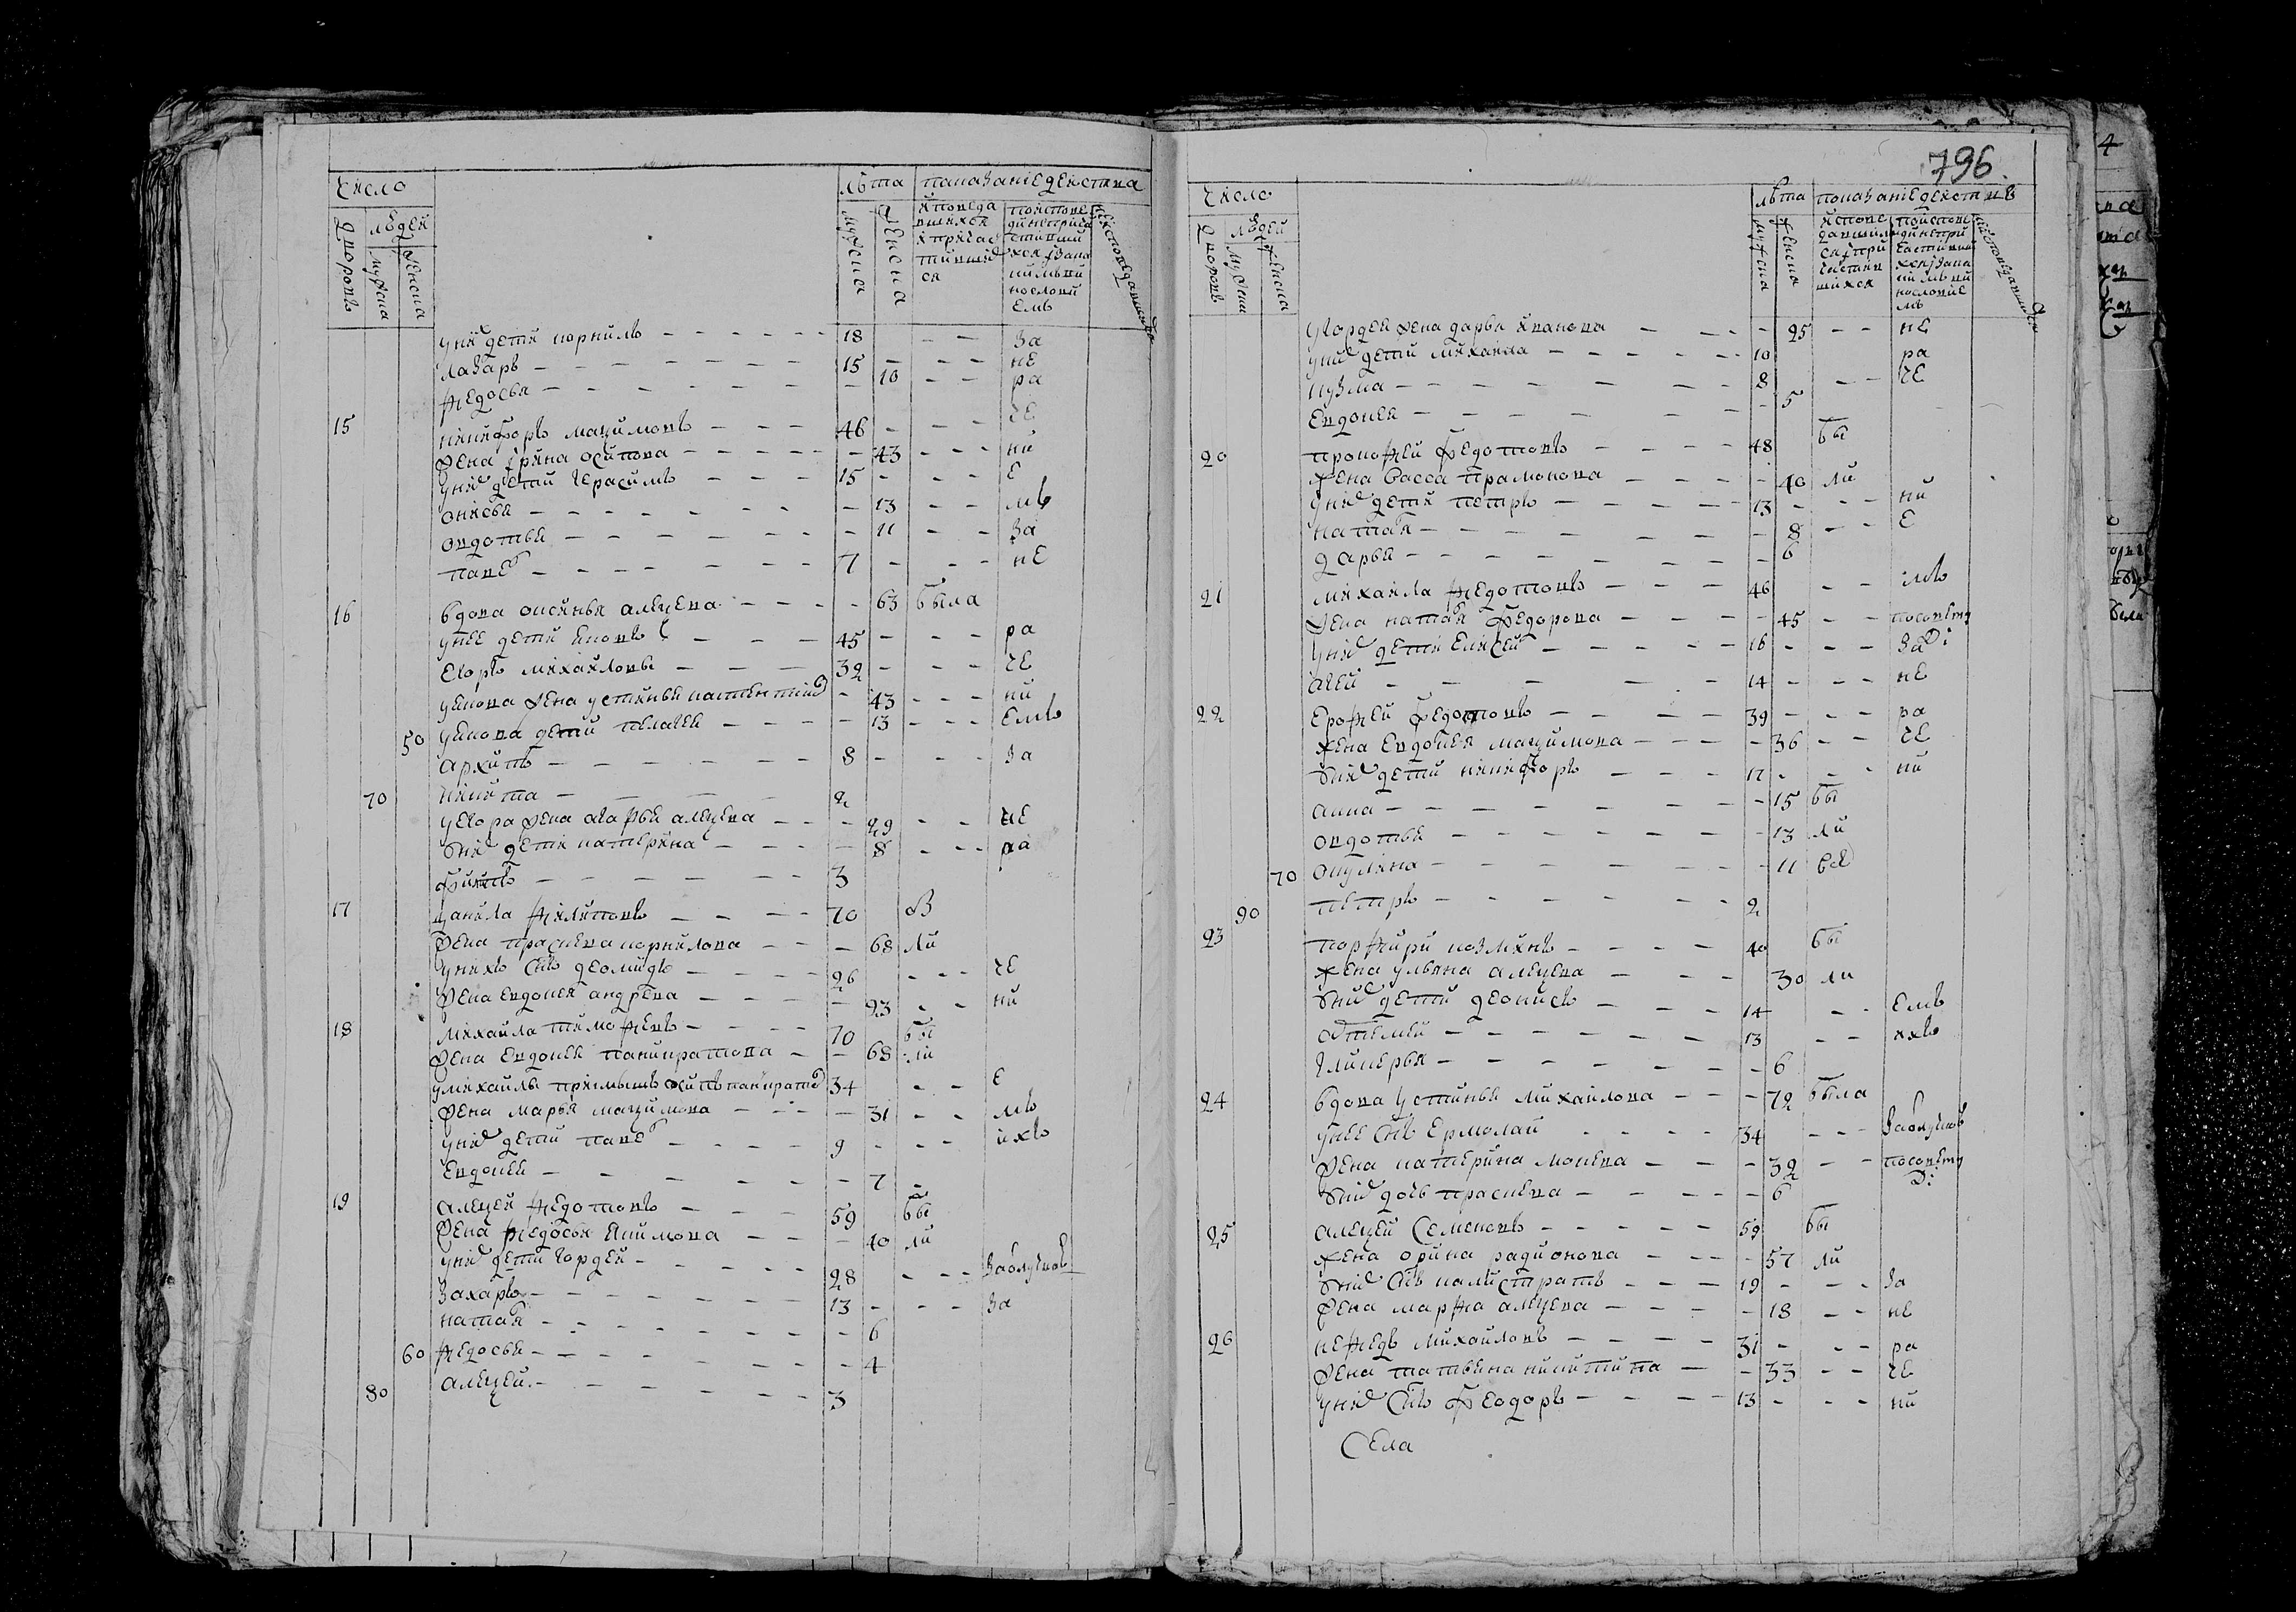 Число
лѣта показаніе действа
дворовъ
людей
мужеска
женска
мужеска
женска
исповедавшихся и причастившихся
унихъ дети корнилъ - - - 18 - - за
лазарь - - - 15 - - не
федосья - - - 10 - - ра
че
15 никифоръ мацимовъ - - - 46 - - -
жена ірина осипова - - - 43 - - ни
унихъ дети герасимъ - - - 15 - - е
онисья - - - 13 - - мъ
овдотья - - - 11 - - за
павелъ - - - 7 - - не
16 вдова оксинья алецева - - - 63 была
унее дети яковъ - - - 45 - - ра
егоръ михайловы - - - 32 - - че
уякова жена устинья - - 43 - - ни
уякова дети пелагея - - - 13 - - емъ
50
архипъ - - - 8 - - за
70 никита - - - 2
уегора жена агафья алецева - - - 29 - - не
унихъ дети катерина - - - 8 - - ра
3
17 данила филиповъ - - - 70
жена прасковья корнилова - - - 68 ли
унихъ снъ деомидъ - - - 26 - - че
жена евдокея андреева - - - 23 - - ни
18 михайла тимофеевъ - - - 70 бы
жена евдокея панкратова - - 68 ли
умихайлы приимышъ осипъ панкратовъ 34 - - е
жена марья мацимова - - - 31 - - мъ
унихъ дети павелъ - - - 9 - - ихъ
евдокея - - - 7 -
19 алецей федотовъ - - - 59 бы
жена федосья якимова - - - 40 ли
унихъ дети гордей - - - 28 - - заотлучкою
захаръ - - - 13 - - за
наталя - - - 6
60 федосья - - - 4
80 алецей - - - 3
796.
Число
лѣта показаніе действа
дворовъ
людей
мужеска
женска
мужеска
женска
угордея жена дарья иванова - - - 25 - - не
унихъ дети михайла - - - 10 ра
кузма - - - 8 - - че
евдокея - - - 5
20 прокофей федотовъ - - - 48 бы
жена васса прамонова - - - 40 ли
унихъ дети петръ - - - 13 - - ни
наталя - - - 8 - - е
дарья - - - 6
21 михайла федотовъ - - - 46 - - мъ
жена наталя федорова - - - 45 - - посовету
унихъ дети елисей - - - 16 - - за
агей - - - 14 - - не
22 ерофей федотовъ - - - 39 - - ра
жена евдокея мацимова - - - 36 - - че
унихъ дети никифоръ - - - 17 - - ни
анна - - - 15 бы
овдотья - - - 13 ли
70 окулина - - - 11 всѣ
90 петръ - - - 2
23 порфири козминъ - - - 40 бы
жена ульяна алецева - - - 30 ли
унихъ дети деонисъ - - - 14 - - емъ
артемей - - - 13 - - ихъ
гликерья - - - 6
24 вдова устинья михайлова - - - 72 была
унее снъ ермолай - - - 34 - - заотлучкою
жена катерина мокеева - - - 32 - - посовету
унихъ дочь прасковья - - - 6
25 алецей семеновъ - - - 59 бы
жена орина радионова - - - 57 ли
унихъ снъ калистратъ - - - 19 - - за
жена марфа алецева - - - 18 - - не
26 нефедъ михайловъ - - - 31 - - ра
жена татьяна никитина - - 33 - - че
унихъ снъ феодоръ - - - 13 - - ни
Села